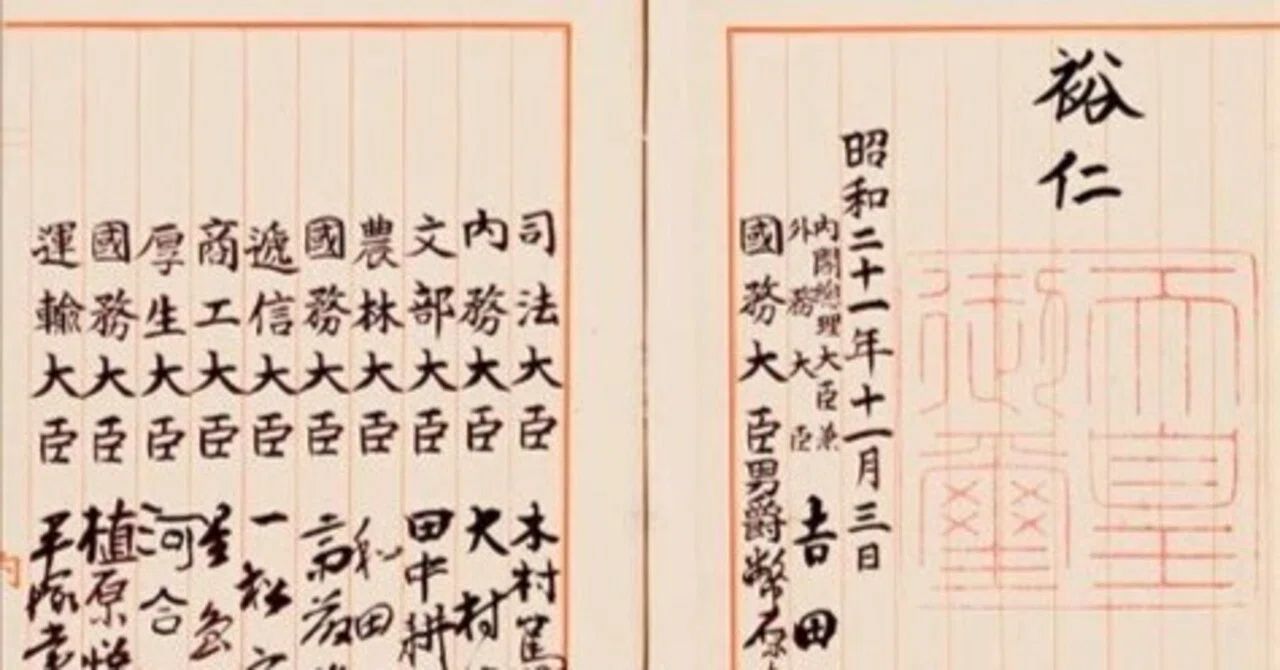 裕仁
天皇御璽
昭和二十一年十一月三日
内閣總理大臣兼
外務大臣
吉田
國務大臣男爵幣原
司法大臣木村篤
内務大臣大村
文部大臣田中耕
農林大臣和田
國務大臣斎藤
遞信大臣一松定
商工大臣星島
厚生大臣河合
國務大臣植原悦
運輸大臣平塚常